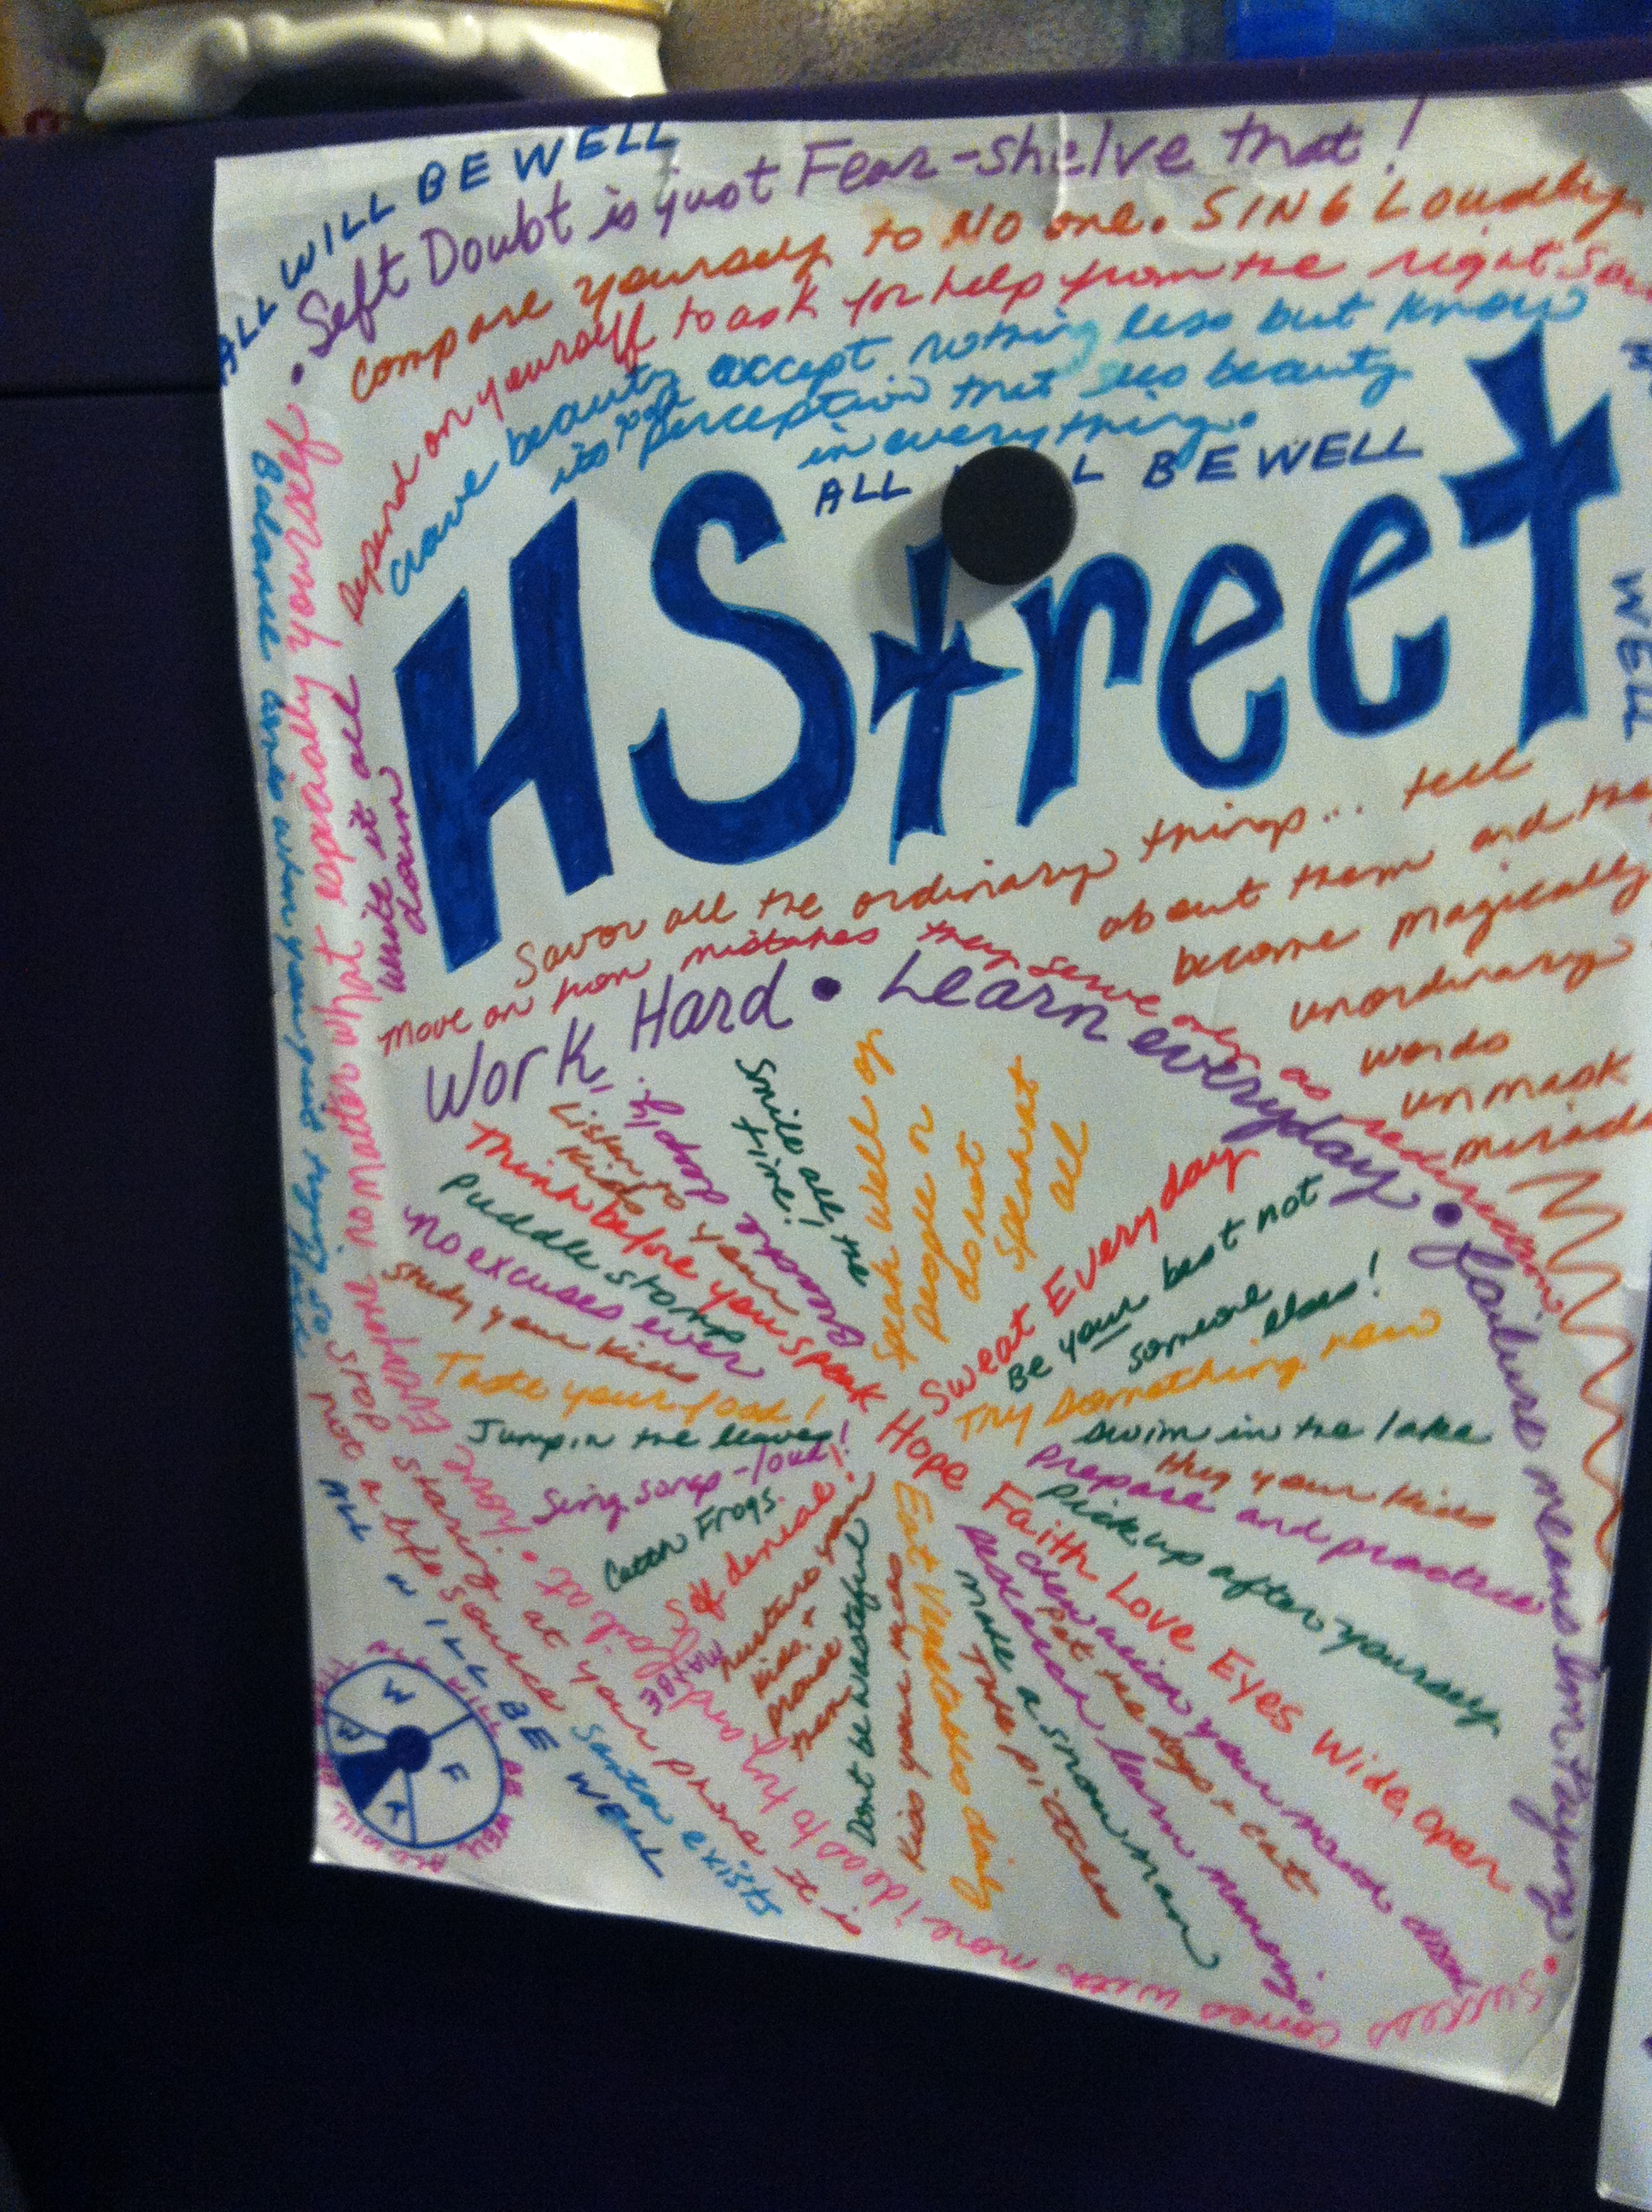 ALL WILL BE WELL
• Self Doubt is just Fear - shelve that!
Compare yourself to No one. SING Loudly
Depend on yourself to ask for help from the right
Crave beauty accept nothing less but know
its perception that sees beauty
in everything.
ALL BE WELL
HStreet
WELL
Balance comes when you quit trying to
Everyone no matter what especially yourself
write it all
down
Savor all the ordinary things... tell
about them and
become magically
unordinary
words
unmask
Move on from mistakes they serve only as
Work Hard • Learn everyday • failure means
Smile all the
time!
Speak well of
people or
do not
speak at
all
Listen to your
Kids
Think before you speak
Puddle stomp
No excuses ever
Study your kids
Taste your food!
Jump in the leaves!
Sing songs - loud!
Catch Frogs.
Self denial!
Sweat Everyday
Be your best not
someone
else's!
Try Something new
Swim in the lake
Hug your kids
Prepare and practice
Pick up after yourself
Hope Faith Love Eyes Wide Open
Pet the dogs + cat
Make a snow man
Take pictures
Kiss your kids
Dont be wasteful
MAYBE
Stop staring at your phone it is
not a life source
Santa exists
ALL WILL BE WELL
Success comes with more
W
F
T